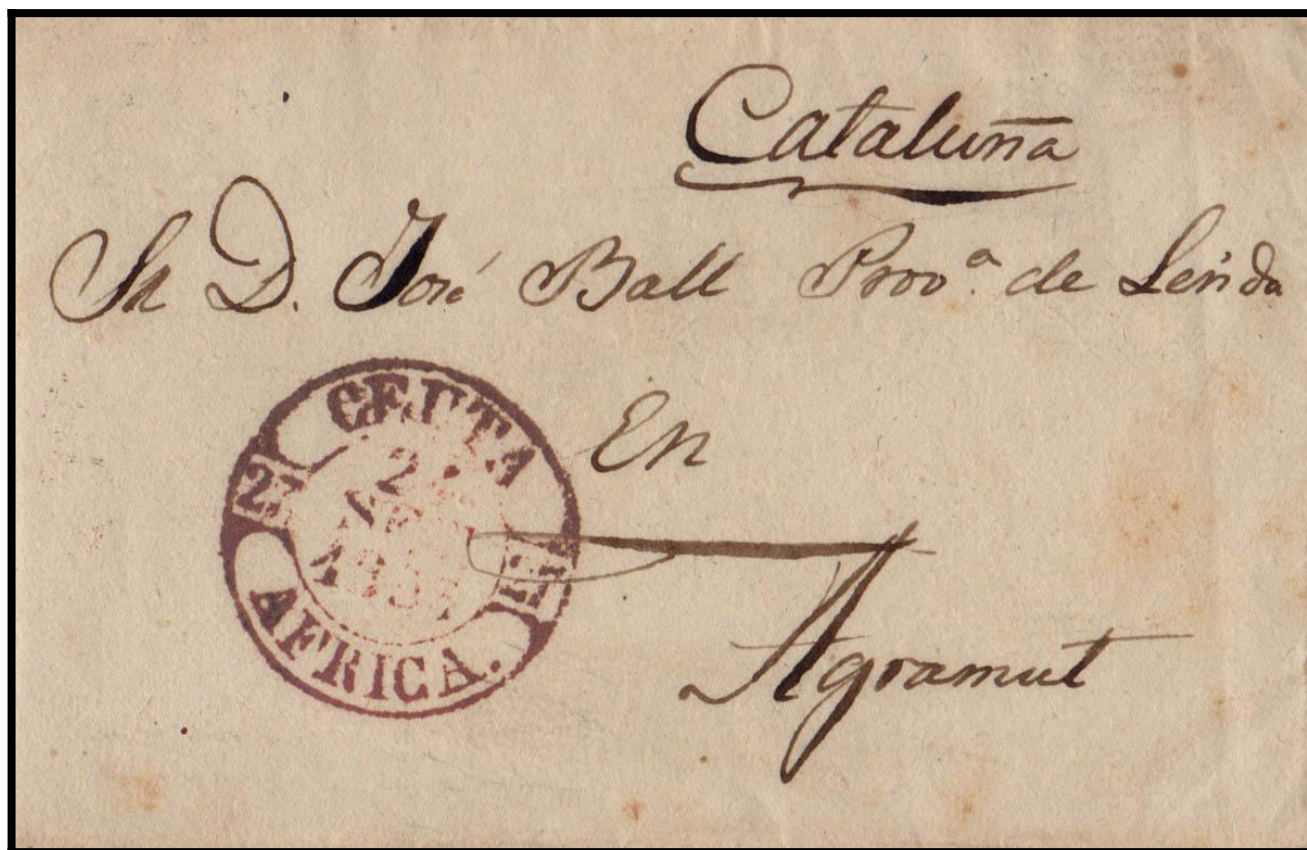 Cataluña
Sr D. José Ball Prov.ª de Lérida
En
Agramut
CEUTA
27
2
AFRICA.